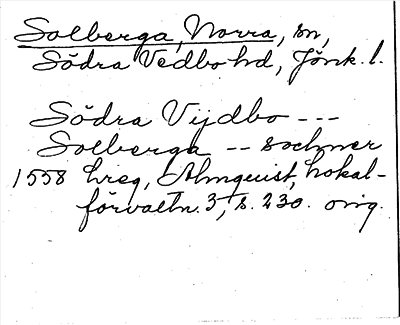 Solberga, Norra, sn,
Södra Vedbo hd, Jönk. l.
Södra Vijdbo ---
Solberga -- sochner
1558 hreg, Almquist, Lokal-
förvaltn. 3, s. 230. orig.